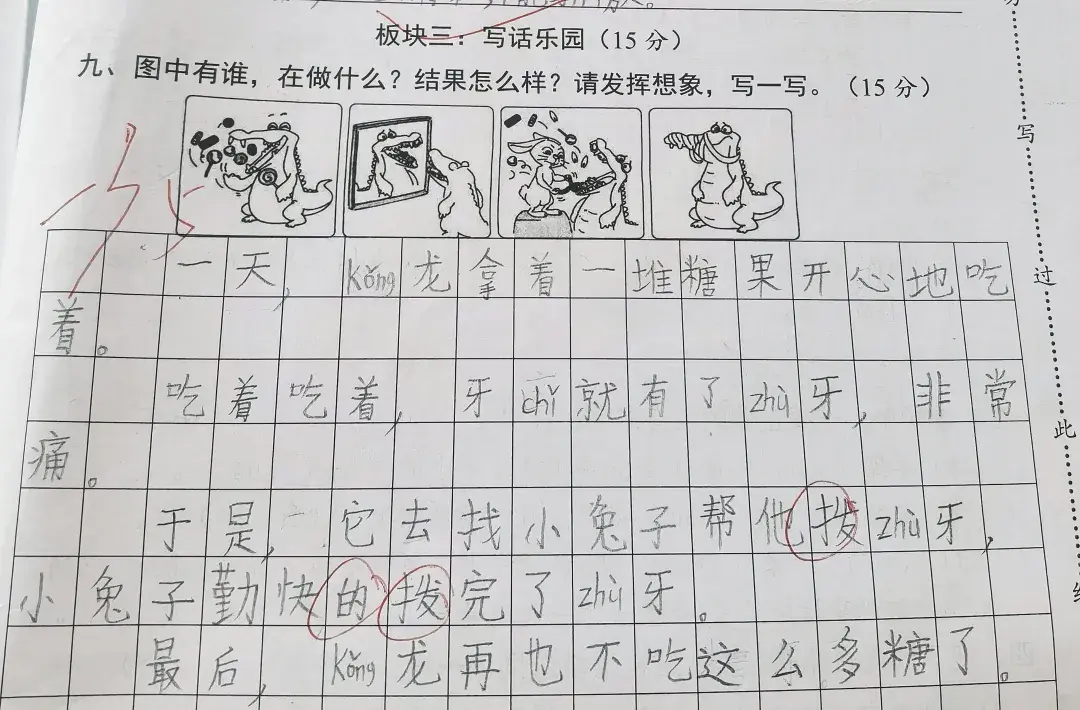 板块三：写话乐园（15 分）
九、图中有谁，在做什么？结果怎么样？请发挥想象，写一写。（15 分）
一天，kǒng龙拿着一堆糖果开心地吃
着。
吃着吃着，牙chǐ就有了zhù牙，非常
痛。
于是，它去找小兔子帮他拨zhù牙，
小兔子勤快的拨完了zhù牙。
最后，kǒng龙再也不吃这么多糖了。
写
过
此